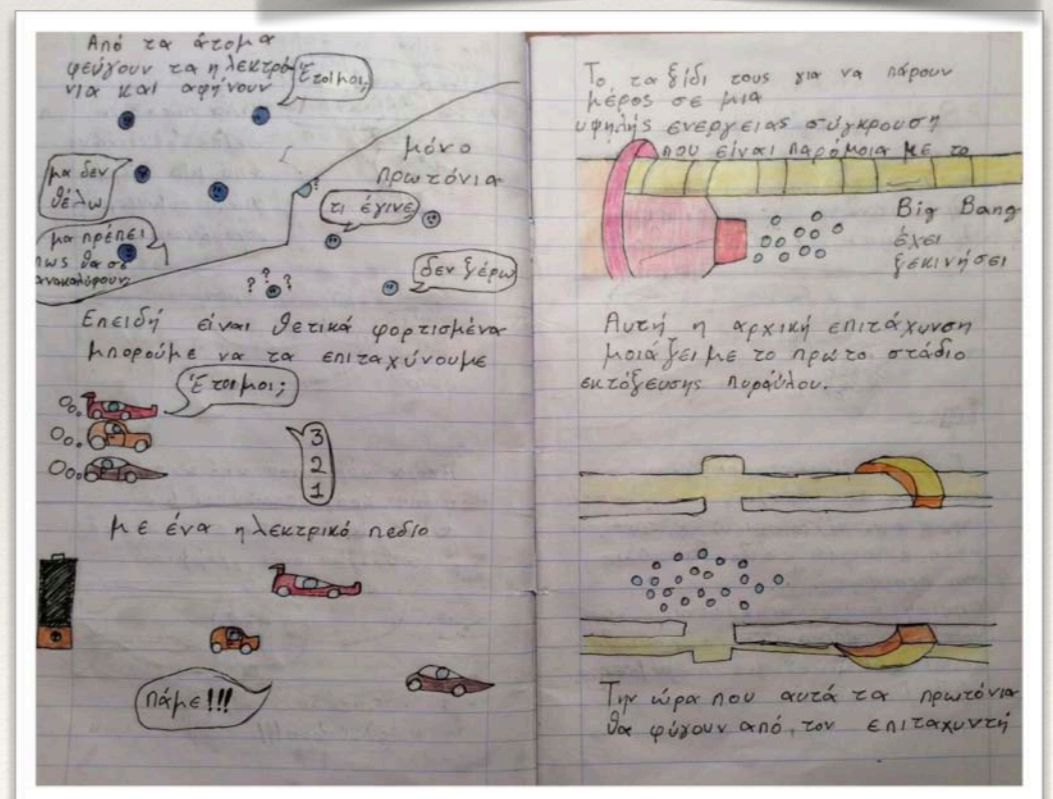 Από τα άτομα
φεύγουν τα ηλεκτρό
νια και αφήνουν
Έτοιμοι;
μα δεν
θέλω
μα πρέπει
πως θα σε
ανακαλύψουν;
μόνο
πρωτόνια
τι έγινε
δεν ξέρω
? ? ?
Επειδή είναι θετικά φορτισμένα
μπορούμε να τα επιταχύνουμε
Έτοιμοι;
3
2
1
με ένα ηλεκτρικό πεδίο
πάμε!!!
Το ταξίδι τους για να πάρουν
μέρος σε μια
υψηλής ενέργειας σύγκρουση
που είναι παρόμοια με το
Big Bang
έχει
ξεκινήσει
Αυτή η αρχική επιτάχυνση
μοιάζει με το πρώτο στάδιο
εκτόξευσης πυραύλου.
Την ώρα που αυτά τα πρωτόνια
θα φύγουν από τον επιταχυντή